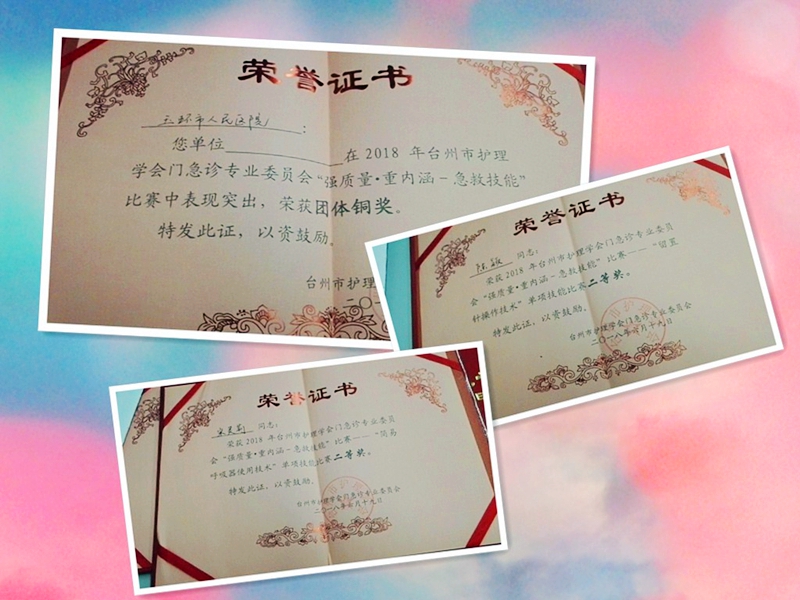 荣誉证书
玉环市人民医院:
您单位 在 2018 年台州市护理
学会门急诊专业委员会“强质量·重内涵-急救技能”
比赛中表现突出，荣获团体铜奖。
特发此证，以资鼓励。
台州市护理
二〇
荣誉证书
陈敏 同志:
荣获 2018 年台州市护理学会门急诊专业委员
会“强质量·重内涵-急救技能”比赛——“留置
针操作技术”单项技能比赛二等奖。
特发此证，以资鼓励。
台州市护理学会门急诊专业委员会
二〇一八年六月十九日
荣誉证书
同志:
荣获 2018 年台州市护理学会门急诊专业委员
会“强质量·重内涵-急救技能”比赛——“简易
呼吸器使用技术”单项技能比赛二等奖。
特发此证，以资鼓励。
台州市护理学会门急诊专业委员会
二〇一八年六月十九日